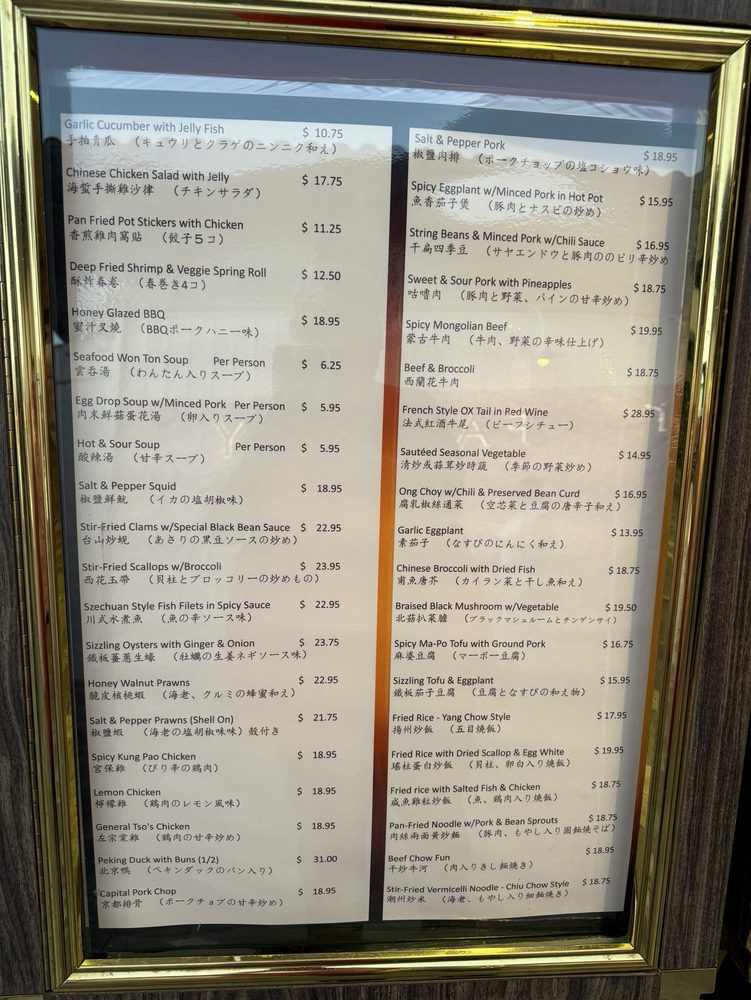 Garlic Cucumber with Jelly Fish $ 10.75
手拍青瓜 （キュウリとクラゲのニンニク和え）
Chinese Chicken Salad with Jelly $ 17.75
海蜇手撕雞沙律 （チキンサラダ）
Pan Fried Pot Stickers with Chicken $ 11.25
香煎雞肉窩貼 （餃子５コ）
Deep Fried Shrimp & Veggie Spring Roll $ 12.50
酥炸春卷 （春巻き4コ）
Honey Glazed BBQ $ 18.95
蜜汁叉燒 （BBQポークハニー味）
Seafood Won Ton Soup Per Person $ 6.25
雲吞湯 （わんたん入りスープ）
Egg Drop Soup w/Minced Pork Per Person $ 5.95
肉末鮮菇蛋花湯 （卵入りスープ）
Hot & Sour Soup Per Person $ 5.95
酸辣湯 （甘辛スープ）
Salt & Pepper Squid $ 18.95
椒鹽鮮魷 （イカの塩胡椒味）
Stir-Fried Clams w/Special Black Bean Sauce $ 22.95
台山炒蜆 （あさりの黒豆ソースの炒め）
Stir-Fried Scallops w/Broccoli $ 23.95
西花玉帶 （貝柱とブロッコリーの炒めもの）
Szechuan Style Fish Filets in Spicy Sauce $ 22.95
川式水煮魚 （魚の辛ソース味）
Sizzling Oysters with Ginger & Onion $ 23.75
鐵板薑蔥生蠔 （牡蠣の生姜ネギソース味）
Honey Walnut Prawns $ 22.95
脆皮核桃蝦 （海老、クルミの蜂蜜和え）
Salt & Pepper Prawns (Shell On) $ 21.75
椒鹽蝦 （海老の塩胡椒味味）殻付き
Spicy Kung Pao Chicken $ 18.95
宮保雞 （ぴり辛の鶏肉）
Lemon Chicken $ 18.95
檸檬雞 （鶏肉のレモン風味）
General Tso's Chicken $ 18.95
左宗棠雞 （鶏肉の甘辛炒め）
Peking Duck with Buns (1/2) $ 31.00
北京鴨 （ペキンダックのパン入り）
Capital Pork Chop $ 18.95
京都排骨 （ポークチョプの甘辛炒め）
Salt & Pepper Pork $ 18.95
椒鹽肉排 （ポークチョップの塩コショウ味）
Spicy Eggplant w/Minced Pork in Hot Pot $ 15.95
魚香茄子煲 （豚肉とナスビの炒め）
String Beans & Minced Pork w/Chili Sauce $ 16.95
干扁四季豆 （サヤエンドウと豚肉ののピリ辛炒め
Sweet & Sour Pork with Pineapples $ 18.75
咕嚕肉 （豚肉と野菜、パインの甘辛炒め）
Spicy Mongolian Beef $ 19.95
蒙古牛肉 （牛肉、野菜の辛味仕上げ）
Beef & Broccoli $ 18.75
西蘭花牛肉
French Style OX Tail in Red Wine $ 28.95
法式紅酒牛尾 （ビーフシチュー）
Sautéed Seasonal Vegetable $ 14.95
清炒或蒜茸炒時蔬 （季節の野菜炒め）
Ong Choy w/Chili & Preserved Bean Curd $ 16.95
腐乳椒絲通菜 （空芯菜と豆腐の唐辛子和え）
Garlic Eggplant $ 13.95
素茄子 （なすびのにんにく和え）
Chinese Broccoli with Dried Fish $ 18.75
甫魚唐芥 （カイラン菜と干し魚和え）
Braised Black Mushroom w/Vegetable $ 19.50
北菇扒菜膽 （ブラックマシュルームとチンゲンサイ）
Spicy Ma-Po Tofu with Ground Pork $ 16.75
麻婆豆腐 （マーボー豆腐）
Sizzling Tofu & Eggplant $ 15.95
鐵板茄子豆腐 （豆腐となすびの和え物）
Fried Rice - Yang Chow Style $ 17.95
揚州炒飯 （五目焼飯）
Fried Rice with Dried Scallop & Egg White $ 19.95
瑤柱蛋白炒飯 （貝柱、卵白入り焼飯）
Fried rice with Salted Fish & Chicken $ 18.75
咸魚雞粒炒飯 （魚、鶏肉入り焼飯）
Pan-Fried Noodle w/Pork & Bean Sprouts $ 18.75
肉絲兩面黃炒麵 （豚肉、もやし入り固麺焼そば）
Beef Chow Fun $ 18.95
干炒牛河 （肉入りきし麺焼き）
Stir-Fried Vermicelli Noodle - Chiu Chow Style $ 18.75
潮州炒米 （海老、もやし入り細麺焼き）